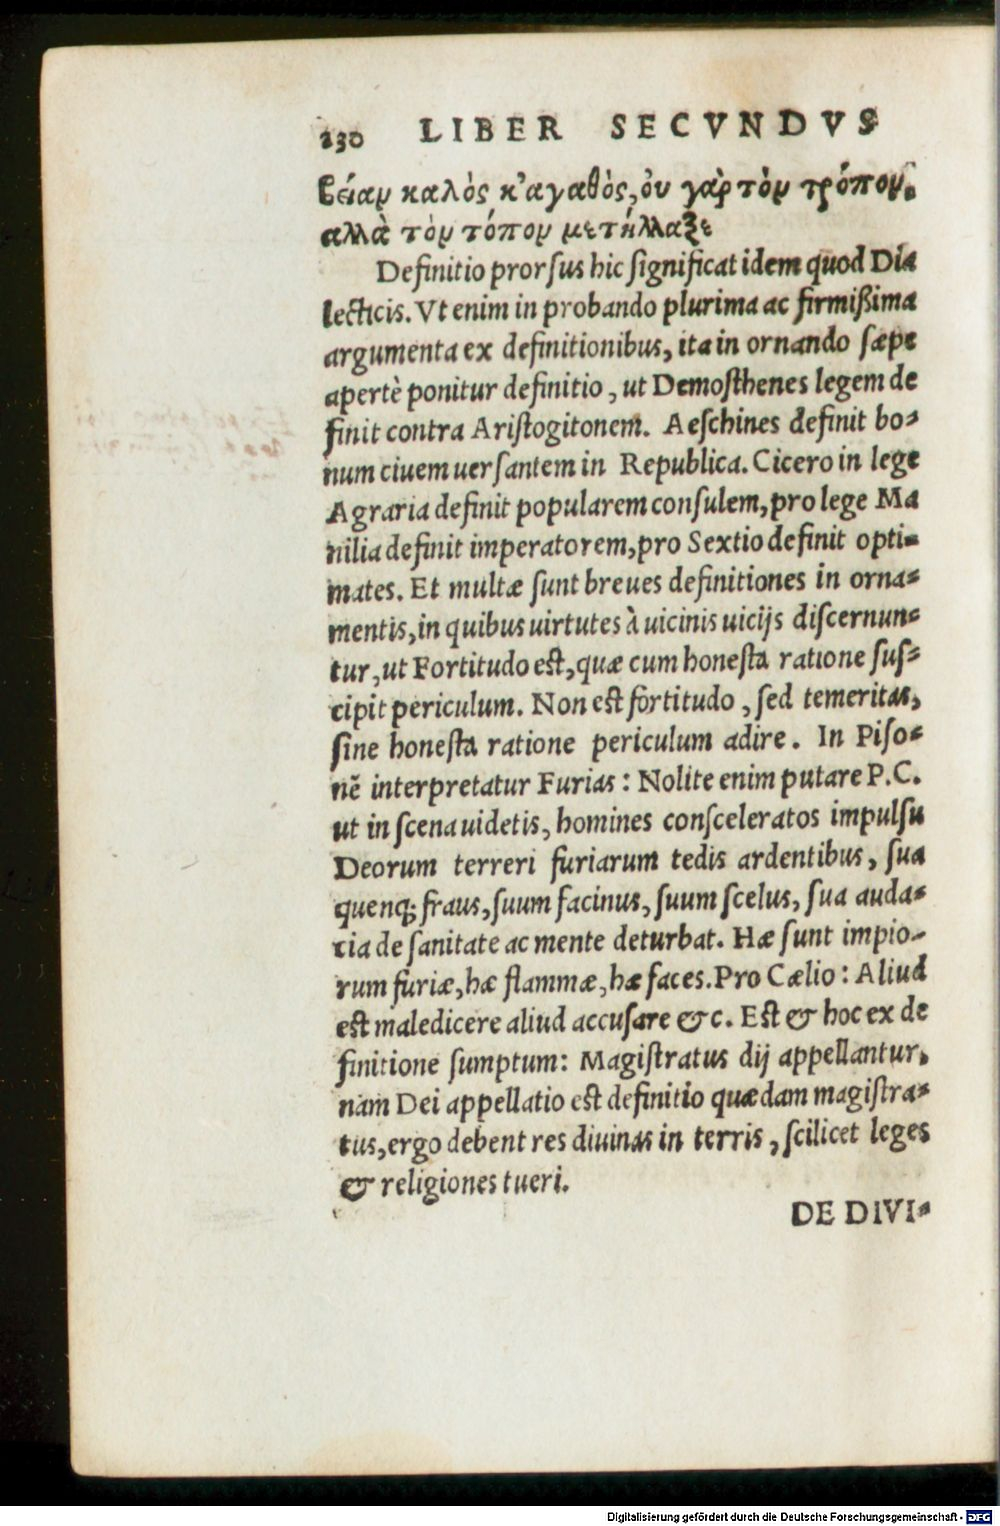 230 LIBER SECVNDVS
βείαν καλὸς κ'αγαθὸς, ὀυ γὰρ τὸν τρόπον,
αλλὰ τὸν τόπον μετήλλαξε
Definitio prorſus hic ſignificat idem quod Dia
lecticis. Vt enim in probando plurima ac firmißima
argumenta ex definitionibus, ita in ornando ſæpe
apertè ponitur definitio, ut Demoſthenes legem de
finit contra Ariſtogitonem. Aeſchines definit bo-
num ciuem uerſantem in Republica. Cicero in lege
Agraria definit popularem conſulem, pro lege Ma
nilia definit imperatorem, pro Sextio definit opti-
mates. Et multæ ſunt breues definitiones in orna-
mentis, in quibus uirtutes à uicinis uicijs diſcernun-
tur, ut Fortitudo eſt, quæ cum honeſta ratione ſuſ-
cipit periculum. Non eſt fortitudo, ſed temeritas,
ſine honeſta ratione periculum adire. In Piſo-
nẽ interpretatur Furias: Nolite enim putare P.C.
ut in ſcena uidetis, homines conſceleratos impulſu
Deorum terreri furiarum tedis ardentibus, ſua
quenq; fraus, ſuum facinus, ſuum ſcelus, ſua auda-
cia de ſanitate ac mente deturbat. Hæ ſunt impio-
rum furiæ, hæ flammæ, hæ faces. Pro Cælio: Aliud
eſt maledicere aliud accuſare &c. Eſt & hoc ex de
finitione ſumptum: Magiſtratus dij appellantur,
nam Dei appellatio eſt definitio quædam magiſtra-
tus, ergo debent res diuinas in terris, ſcilicet leges
& religiones tueri.
DE DIVI-
Digitalisierung gefördert durch die Deutsche Forschungsgemeinschaft - DFG